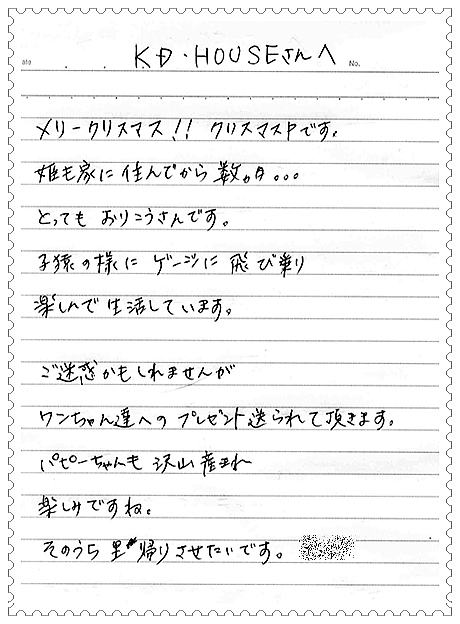 K.D.HOUSEさんへ
ate No.
メリークリスマス!! クリスマスPです。
姫も家に住んでから数ヶ月...
とっても おりこうさんです。
子猿の様に ゲージに 飛び乗り
楽しんで生活しています。
ご迷惑かもしれませんが
ワンちゃん達への プレゼント送られて頂きます。
パピーちゃんも 沢山産まれ
楽しみですね。
そのうち 里帰りさせたいです。